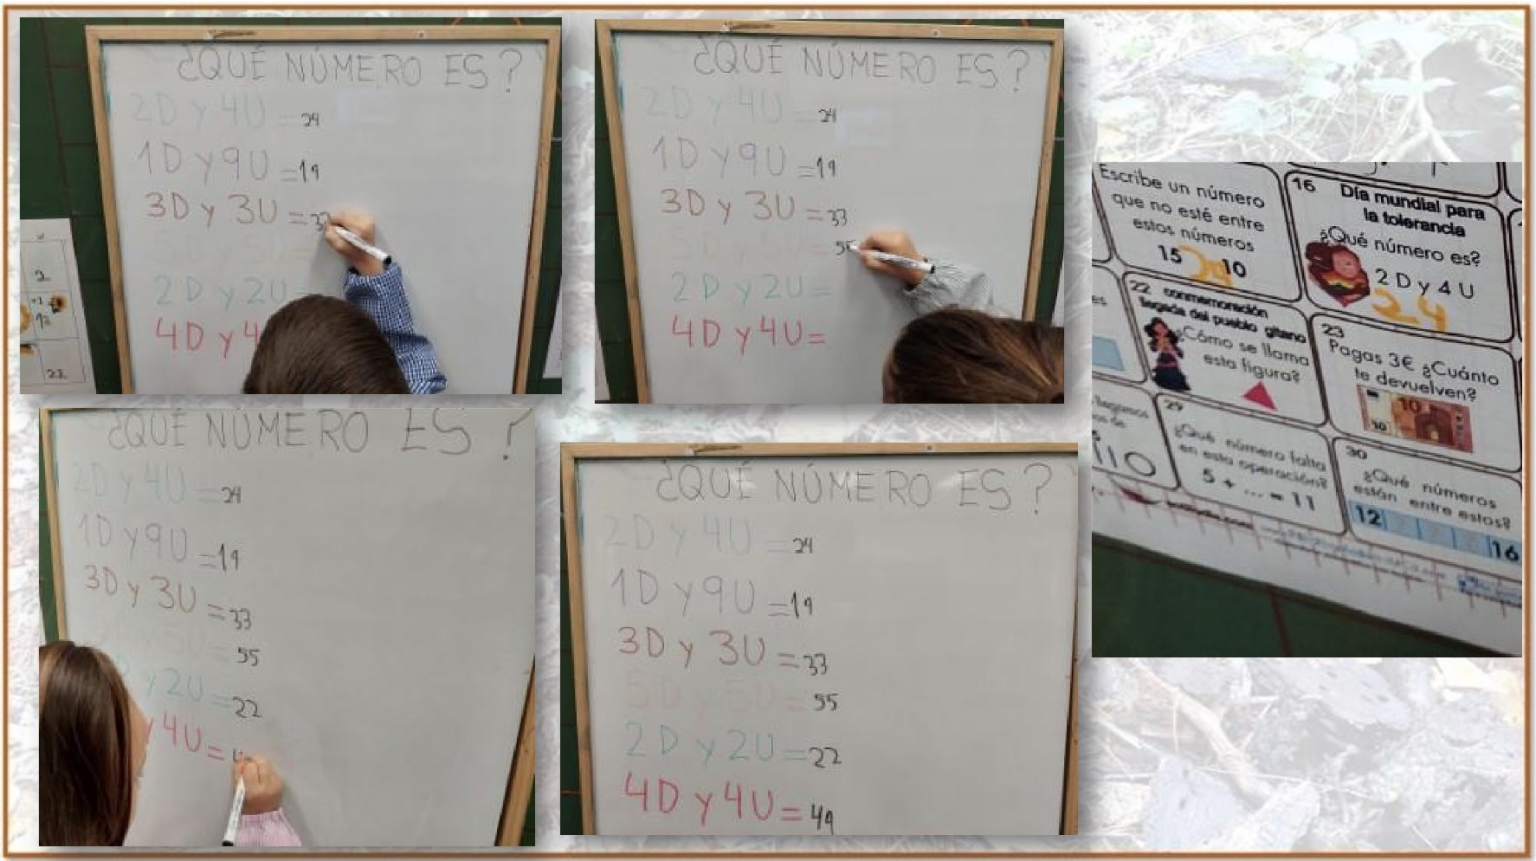 ¿QUÉ NÚMERO ES?
2D y 4U = 24
1D y 9U = 19
3D y 3U = 33
2D y 2U =
4D y 4
2
22
¿QUÉ NÚMERO ES?
2D y 4U = 24
1D y 9U = 19
3D y 3U = 33
= 5
2D y 2U =
4D y 4U =
¿QUÉ NÚMERO ES ?
2D y 4U = 24
1D y 9U = 19
3D y 3U = 33
= 55
y 2U = 22
y 4U = 4
¿QUÉ NÚMERO ES?
2D y 4U = 24
1D y 9U = 19
3D y 3U = 33
5D y 5U = 55
2D y 2U = 22
4D y 4U = 44
Escribe un número
que no esté entre
estos números
15 10
16 Día mundial para
la tolerancia
¿Qué número es?
2 D y 4 U
24
22 conmemoración
llegada del pueblo gitano
¿Cómo se llama
esta figura?
23
Pagas 3€ ¿Cuánto
te devuelven?
10
29
¿Qué número falta
en esta operación?
5 + ... = 11
30
¿Qué números
están entre estos?
12 16